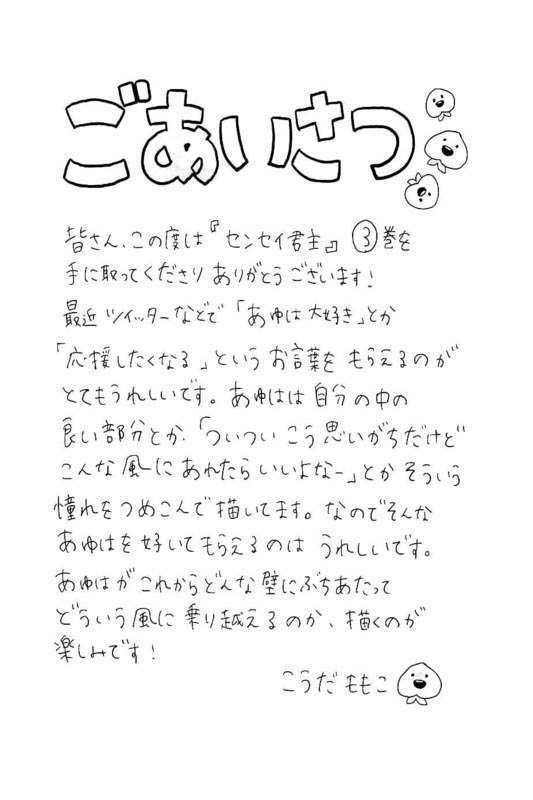 ごあいさつ
皆さん、この度は『センセイ君主』③巻を
手に取ってくださりありがとうございます!
最近ツイッターなどで「あゆは大好き」とか
「応援したくなる」というお言葉をもらえるのが
とてもうれしいです。あゆはは自分の中の
良い部分とか、「ついついこう思いがちだけど
こんな風にあれたらいいよなー」とかそういう
憧れをつめこんで描いてます。なのでそんな
あゆはを好いてもらえるのはうれしいです。
あゆはがこれからどんな壁にぶちあたって
どういう風に乗り越えるのか、描くのが
楽しみです!
こうだももこ